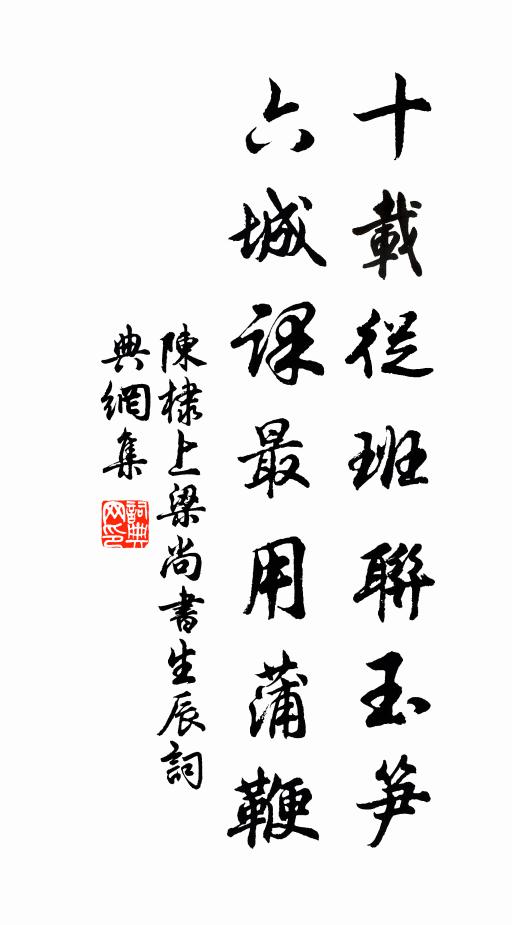 十載從班聯玉笋
六城課最用蒲鞭
陳棣上梁尚書生辰詞
典網集
詞典
网印